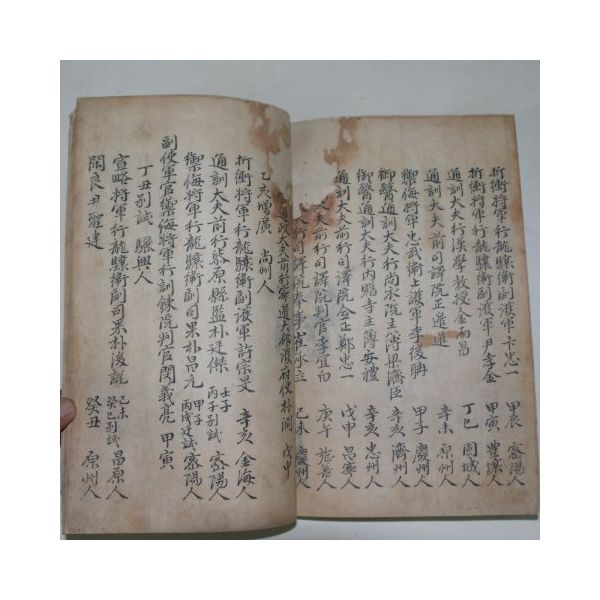 折衝將軍行龍驤衛副護軍卞忠一 甲辰 密陽人
折衝將軍行龍驤衛副護軍尹孝金 甲寅 豊壤人
通訓大夫行漢學教授金南昌 丁巳 固城人
通訓大夫前司譯院正邊 辛未 原州人
禦侮將軍忠武衛上護軍李後 甲子 慶州人
御醫通訓大夫行尚衣院主簿梁濟臣 辛亥 濟州人
御醫通訓大夫行內贍寺主簿安禮 辛亥 忠州人
通訓大夫前行司譯院僉正鄭忠一 戊申 昌寧人
大夫前行司譯院判官李宜白 庚午
大夫行司譯院奉事崔永立 己未 慶州人
通政大夫前行寧邊大都護府使朴 戊申
乙亥增廣 尚州人
折衝將軍行龍驤衛副護軍許宗旻 辛亥 金海人
通訓大夫前行泰原縣監朴廷傑 壬子 丙子別試 密陽人
禦侮將軍行龍驤衛副司果朴昌元 甲子 丙戌廷試 密陽人
副使軍官禦侮將軍行訓鍊院判官閔義亮 甲寅
丁丑別試 驪興人
宣略將軍行龍驤衛副司果朴後說 己未 癸巳別試 昌原人
閑良尹聖達 癸丑 原州人